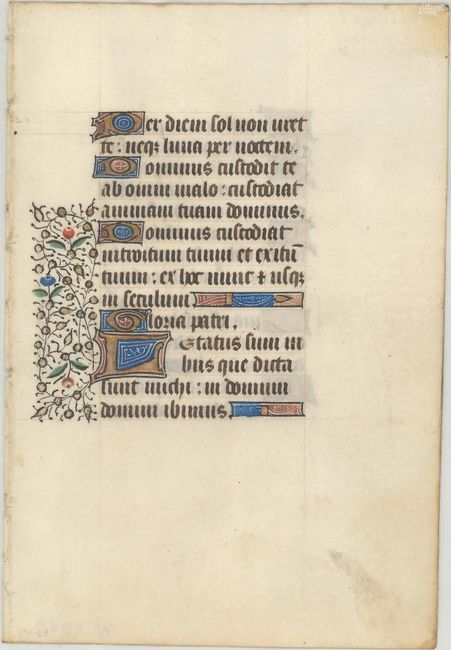 Per diem sol non uret
te : neqꝫ luna per noctem.
Dominus custodit te
ab omni malo : custodiat
animam tuam dominus.
Dominus custodiat
introitum tuum et exitū
tuum : ex hoc nunc ⁊ usqꝫ
in seculum
Gloria patri.
Letatus sum in
hiis que dicta
sunt michi : in domum
domini ibimus.